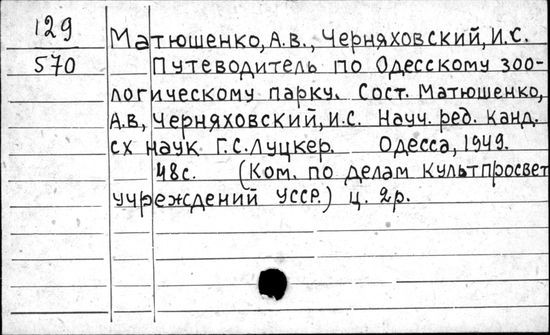 129
570
Матюшенко, А.В., Черняховский, И.С.
Путеводитель по Одесскому зоо-
логическому парку. Сост. Матюшенко,
А.В, Черняховский, И.С. Науч. ред. канд.
сх наук Г.С. Луцкер. Одесса, 1949.
48с. (Ком. по делам культпросвет
учреждений УССР.) ц. 2р.